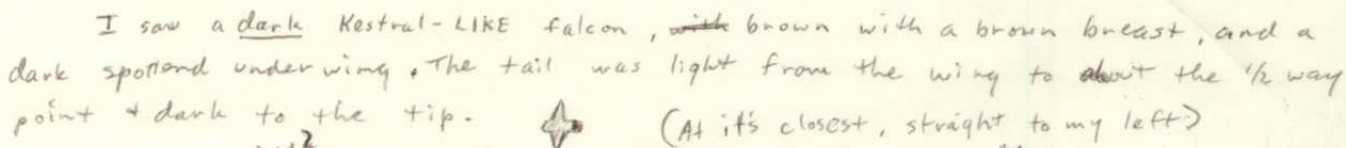 I saw a dark Kestral-LIKE falcon, with brown with a brown breast, and a
dark spottend underwing. The tail was light from the wing to about the 1/2 way
point + dark to the tip. (At it's closest, straight to my left)